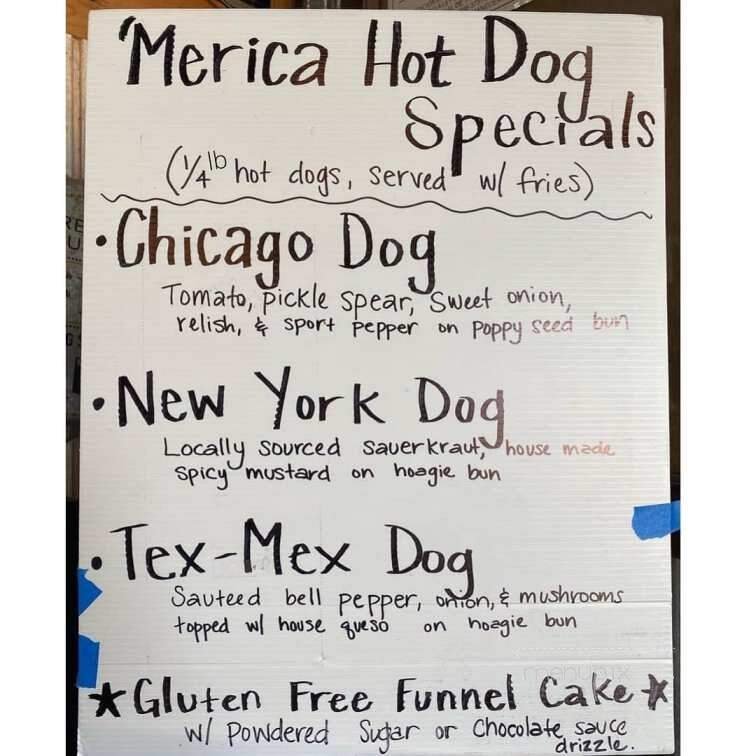 'Merica Hot Dog
Specials
(1/4 lb hot dogs, served w/ fries)
• Chicago Dog
Tomato, pickle spear, sweet onion,
relish, & sport pepper on poppy seed bun
• New York Dog
Locally sourced sauerkraut, house made
spicy mustard on hoagie bun
• Tex-Mex Dog
Sauteed bell pepper, onion, & mushrooms
topped w/ house queso on hoagie bun
★ Gluten Free Funnel Cake ★
w/ Powdered Sugar or Chocolate sauce
drizzle.